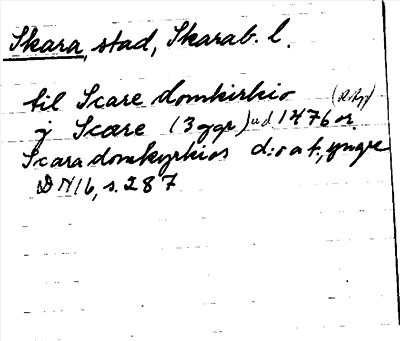 Skara, stad, Skarab. l.
til Scare domkirkio
j Scare (3 ggr) u d 1476 or.
Scara domkyrkios d:o a f., yngre
DN 16, s. 287